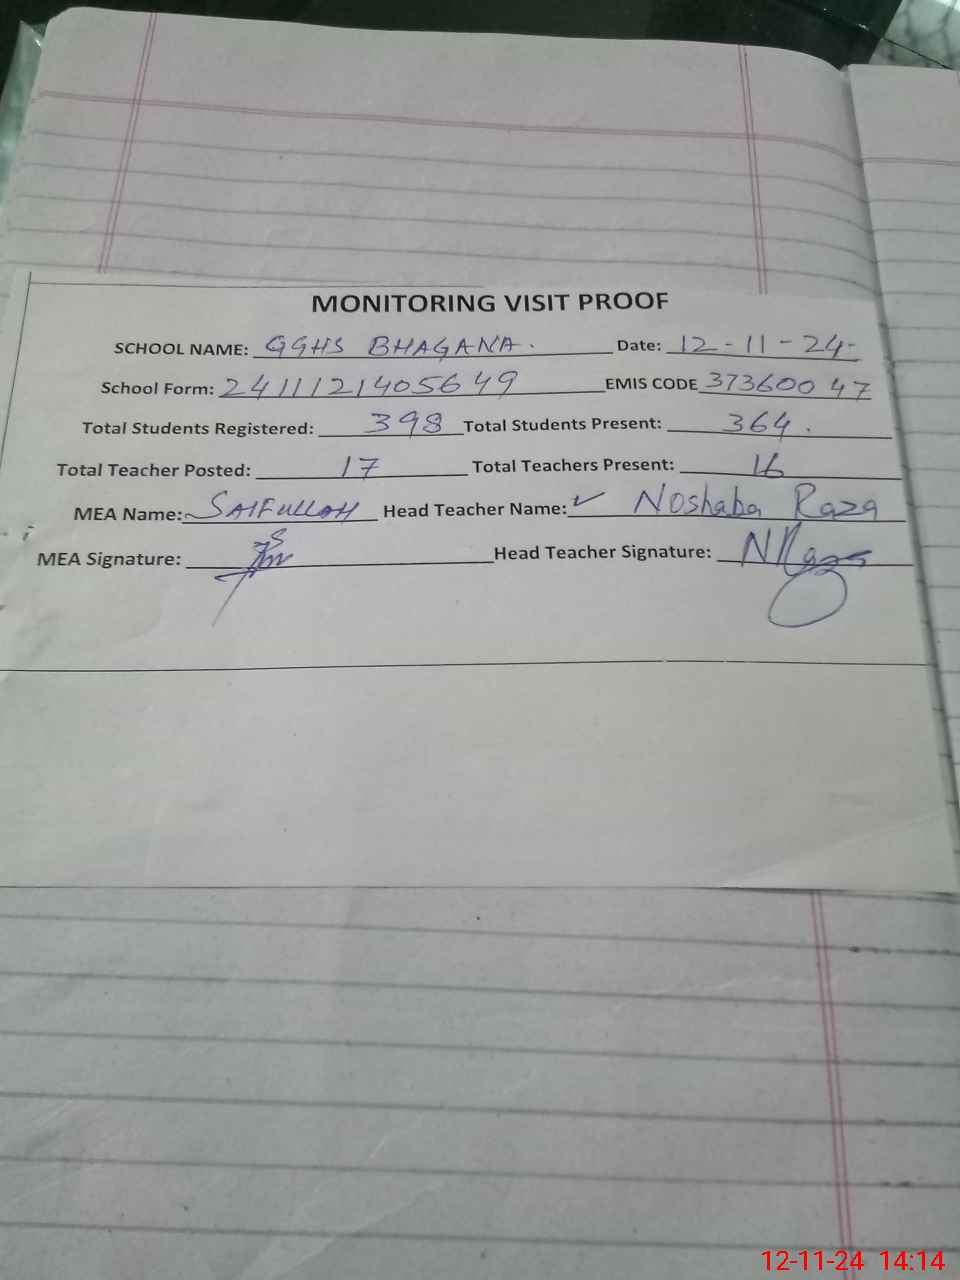 MONITORING VISIT PROOF
SCHOOL NAME: GGHS BHAGANA. Date: 12-11-24-
School Form: 2411121405649 EMIS CODE 37360047
Total Students Registered: 398 Total Students Present: 364.
Total Teacher Posted: 17 Total Teachers Present: 16
MEA Name: SAIFULLAH Head Teacher Name: ✓ Noshaba Raza
MEA Signature: Head Teacher Signature: NRaza
12-11-24 14:14